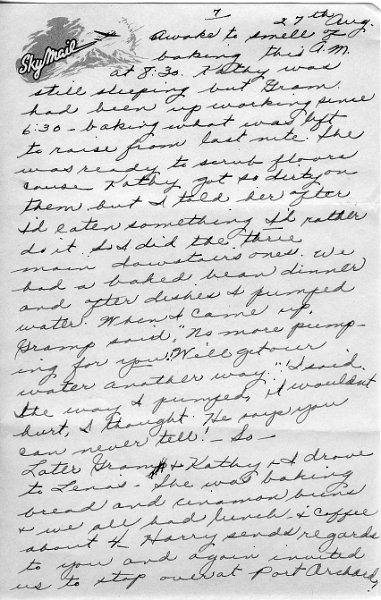 7
27th Aug.
Sky Mail
Awoke to smell of
baking this A.M.
at 8:30. Kathy was
still sleeping but Gram
had been up working since
6:30 - baking what was left
to raise from last nite. She
was ready to scrub floors
cause Kathy got so dirty on
them but I told her after
I'd eaten something I'd rather
do it. So I did the three
main downstairs ones. We
had a baked bean dinner
and after dishes I pumped
water. When I came up,
Gramp said, "No more pump-
ing for you. We'll get our
water another way." I said
the way I pumped, it wouldnt
hurt, I thought. He says you
can never tell! - So -
Later Gram & Kathy & I drove
to Lenas - She was baking
bread and cinamon buns
& we all had lunch & coffee
about 4. Harry sends regards
to you and again invited
us to stop over at Port Orchard,